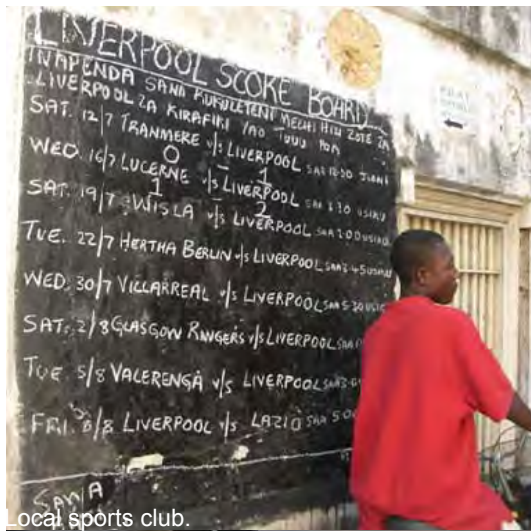 LIVERPOOL SCORE BOARD
INAPENDA SANA KUKULETENI MECHI HIZI ZOTE ZA
LIVERPOOL ZA KIRAFIKI
SAT. 12/7 TRANMERE v/s LIVERPOOL SAA
0 – 1
WED. 16/7 LUCERNE v/s LIVERPOOL SAA USIKU
1 – 2
SAT. 19/7 WISLA v/s LIVERPOOL SAA
TUE. 22/7 HERTHA BERLIN v/s LIVERPOOL SAA
WED. 30/7 VILLARREAL v/s LIVERPOOL SAA 5.30
SAT. 2/8 GLASGOW RANGERS v/s LIVERPOOL SAA
TUE. 5/8 VALERENGA v/s LIVERPOOL SAA
FRI. /8 LIVERPOOL v/s LAZIO SAA 5.0
Local sports club.